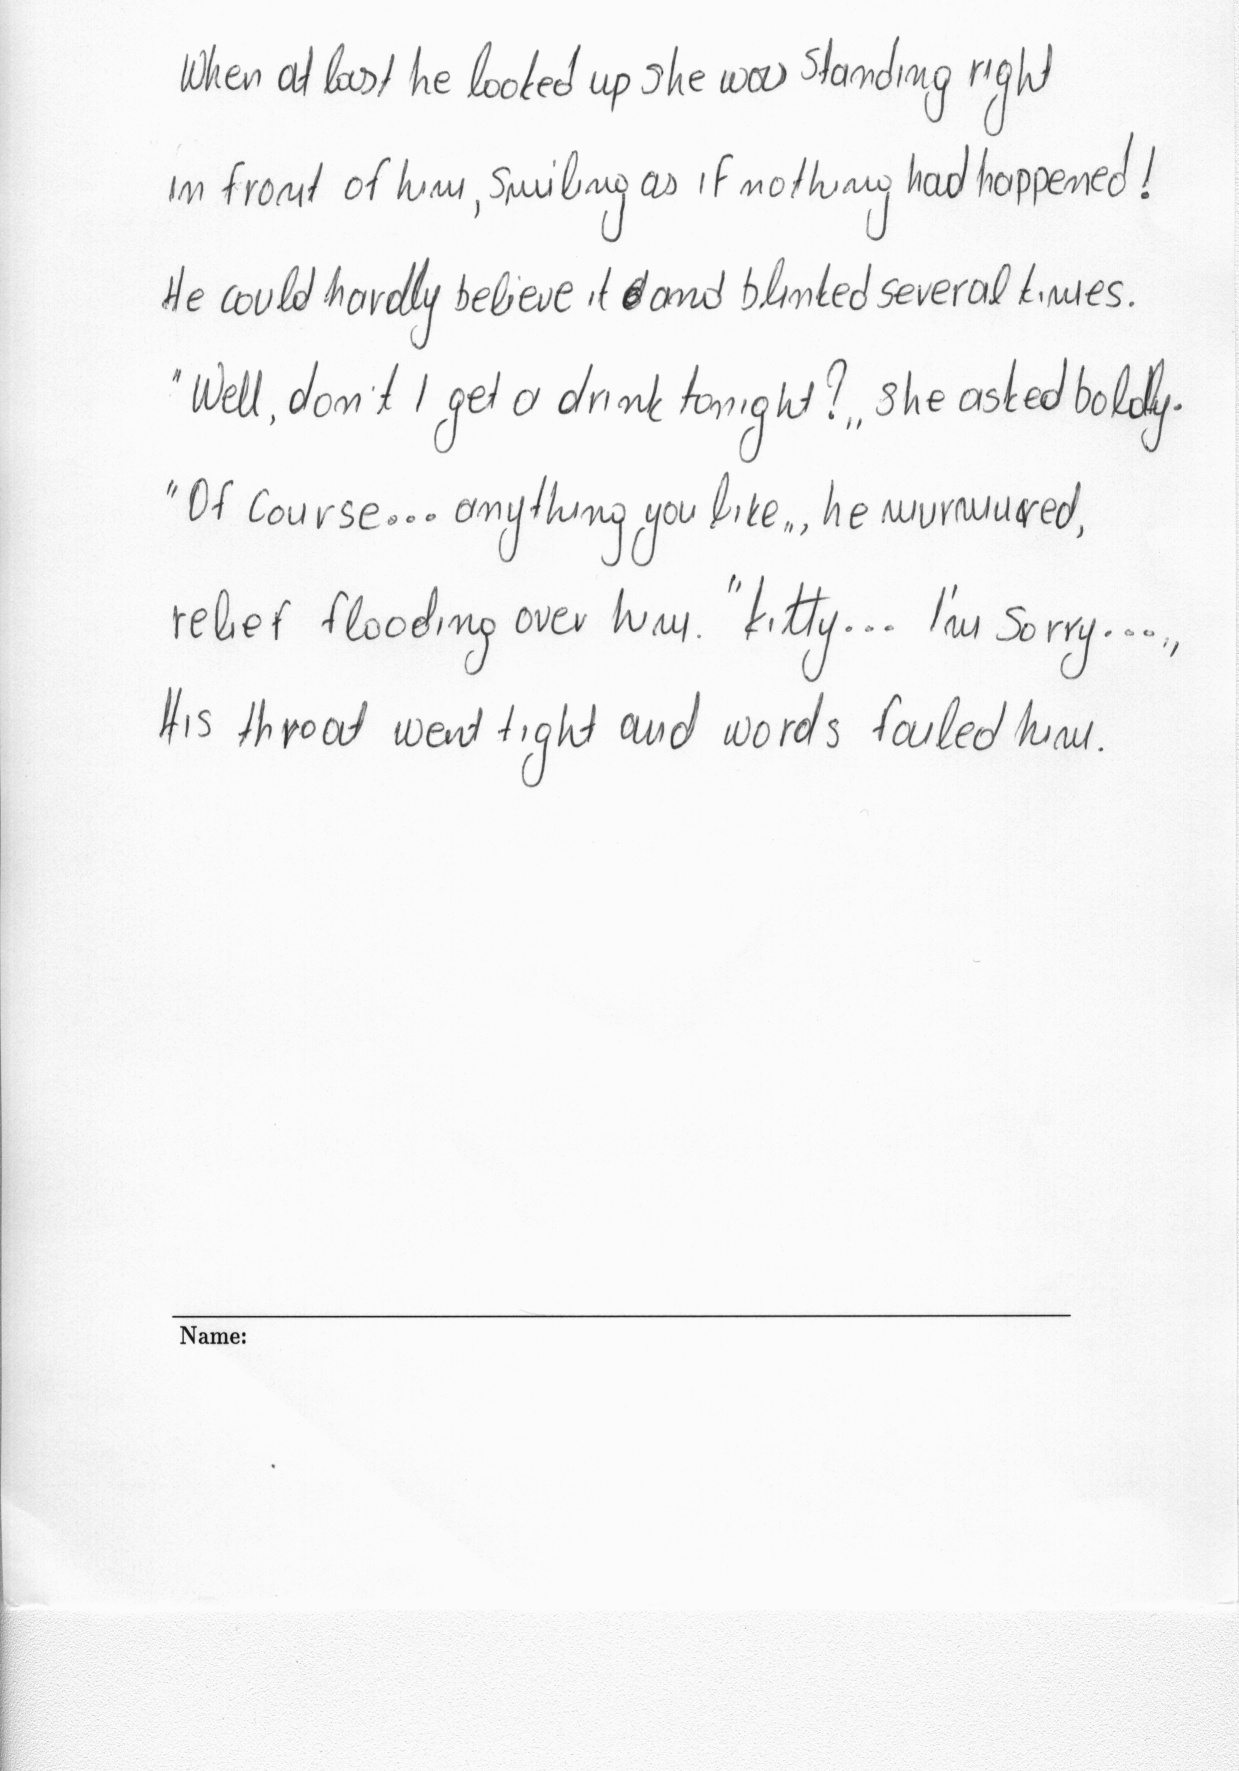 When at last he looked up she was standing right
in front of him, smiling as if nothing had happened!
He could hardly believe it and blinked several times.
"Well, don't I get a drink tonight?„ she asked boldly.
"Of course... anything you like„, he murmured,
relief flooding over him. "Kitty... I'm sorry....„
His throat went tight and words failed him.
Name: